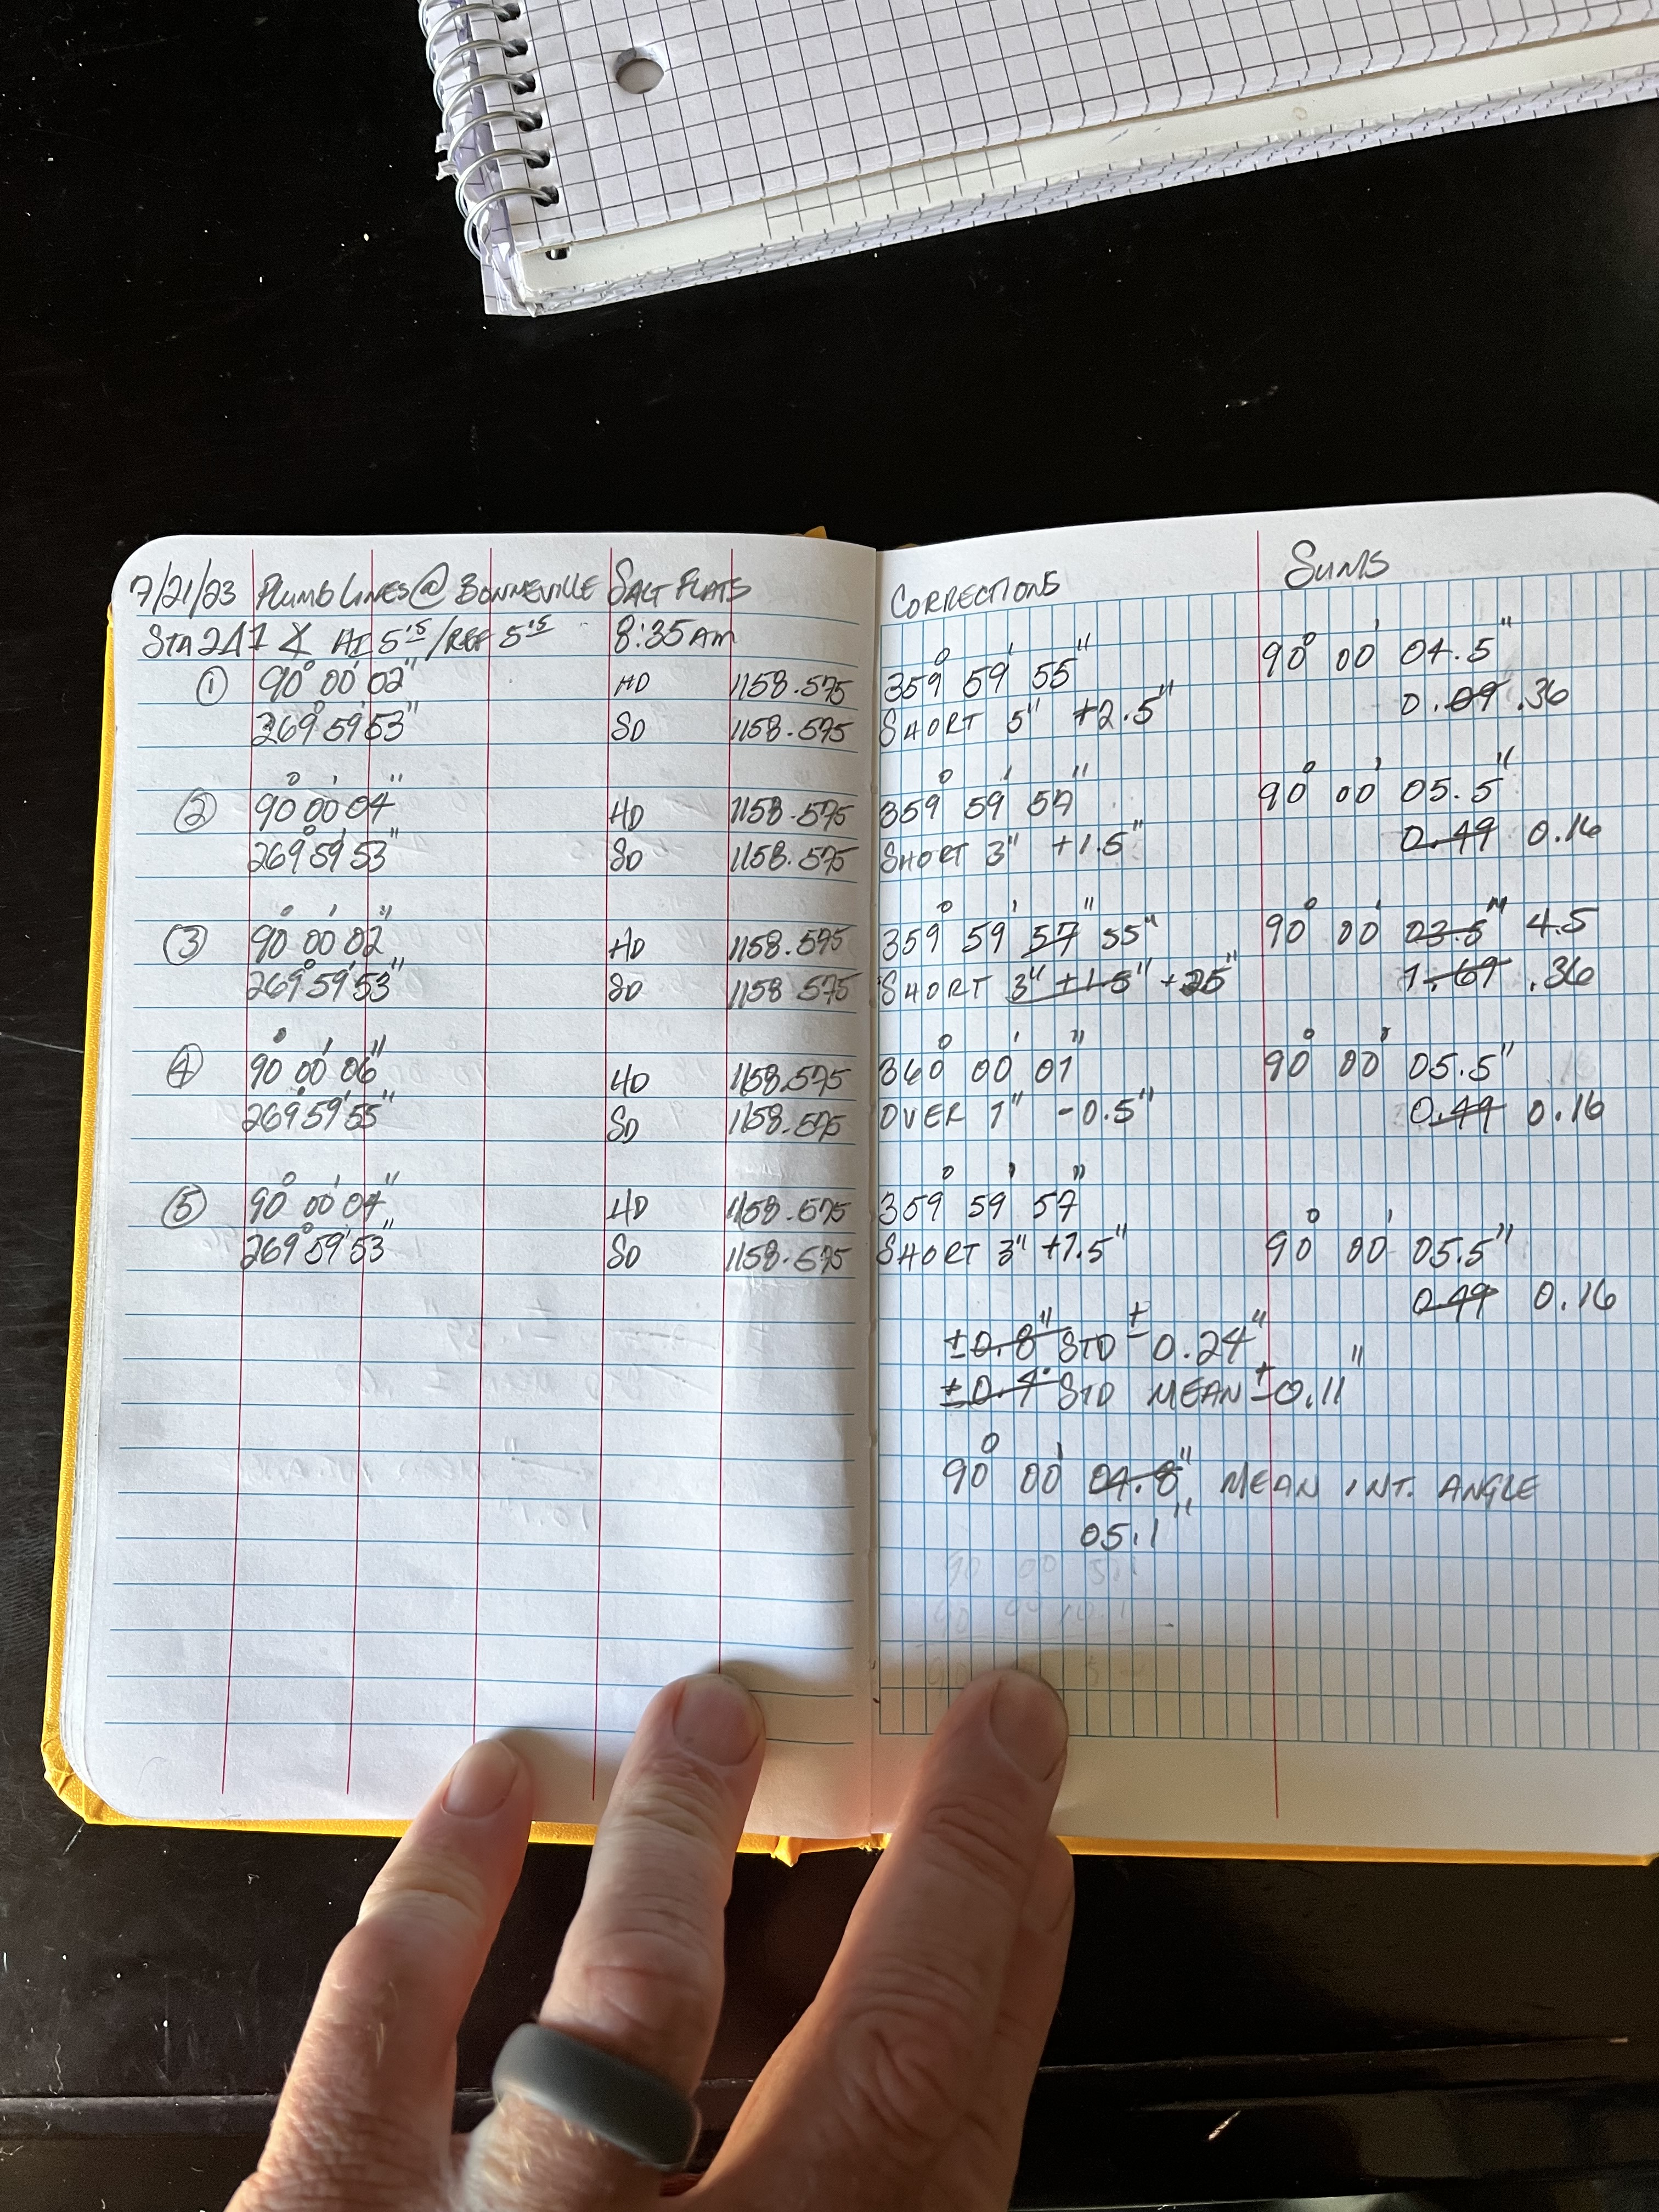 7/21/23 PLUMB LINES @ BONNEVILLE SALT FLATS
STA 2A1 HI 5'15 / REF 5'15 8:35 AM
① 90° 00' 02" HD 1158.575
269° 59' 53" SD 1158.575
② 90° 00' 04" HD 1158.575
269° 59' 53" SD 1158.575
③ 90° 00' 02" HD 1158.575
269° 59' 53" SD 1158.575
④ 90° 00' 06" HD 1158.575
269° 59' 55" SD 1158.575
⑤ 90° 00' 04" HD 1158.575
269° 59' 53" SD 1158.575
CORRECTIONS
359° 59' 55"
SHORT 5" +2.5"
359° 59' 57"
SHORT 3" +1.5"
359° 59' 57 55"
SHORT 3" +1.5" +25"
360° 00' 01"
OVER 1" -0.5"
359° 59' 57"
SHORT 3" +1.5"
±0.8" STD ± 0.24"
±0.4" STD MEAN ±0.11"
90° 00' 04.8" MEAN INT. ANGLE
05.1"
SUMS
90° 00' 04.5"
0.09 .36
90° 00' 05.5"
0.49 0.16
90° 00' 03.5" 4.5
1.69 .36
90° 00' 05.5"
0.49 0.16
90° 00' 05.5"
0.49 0.16